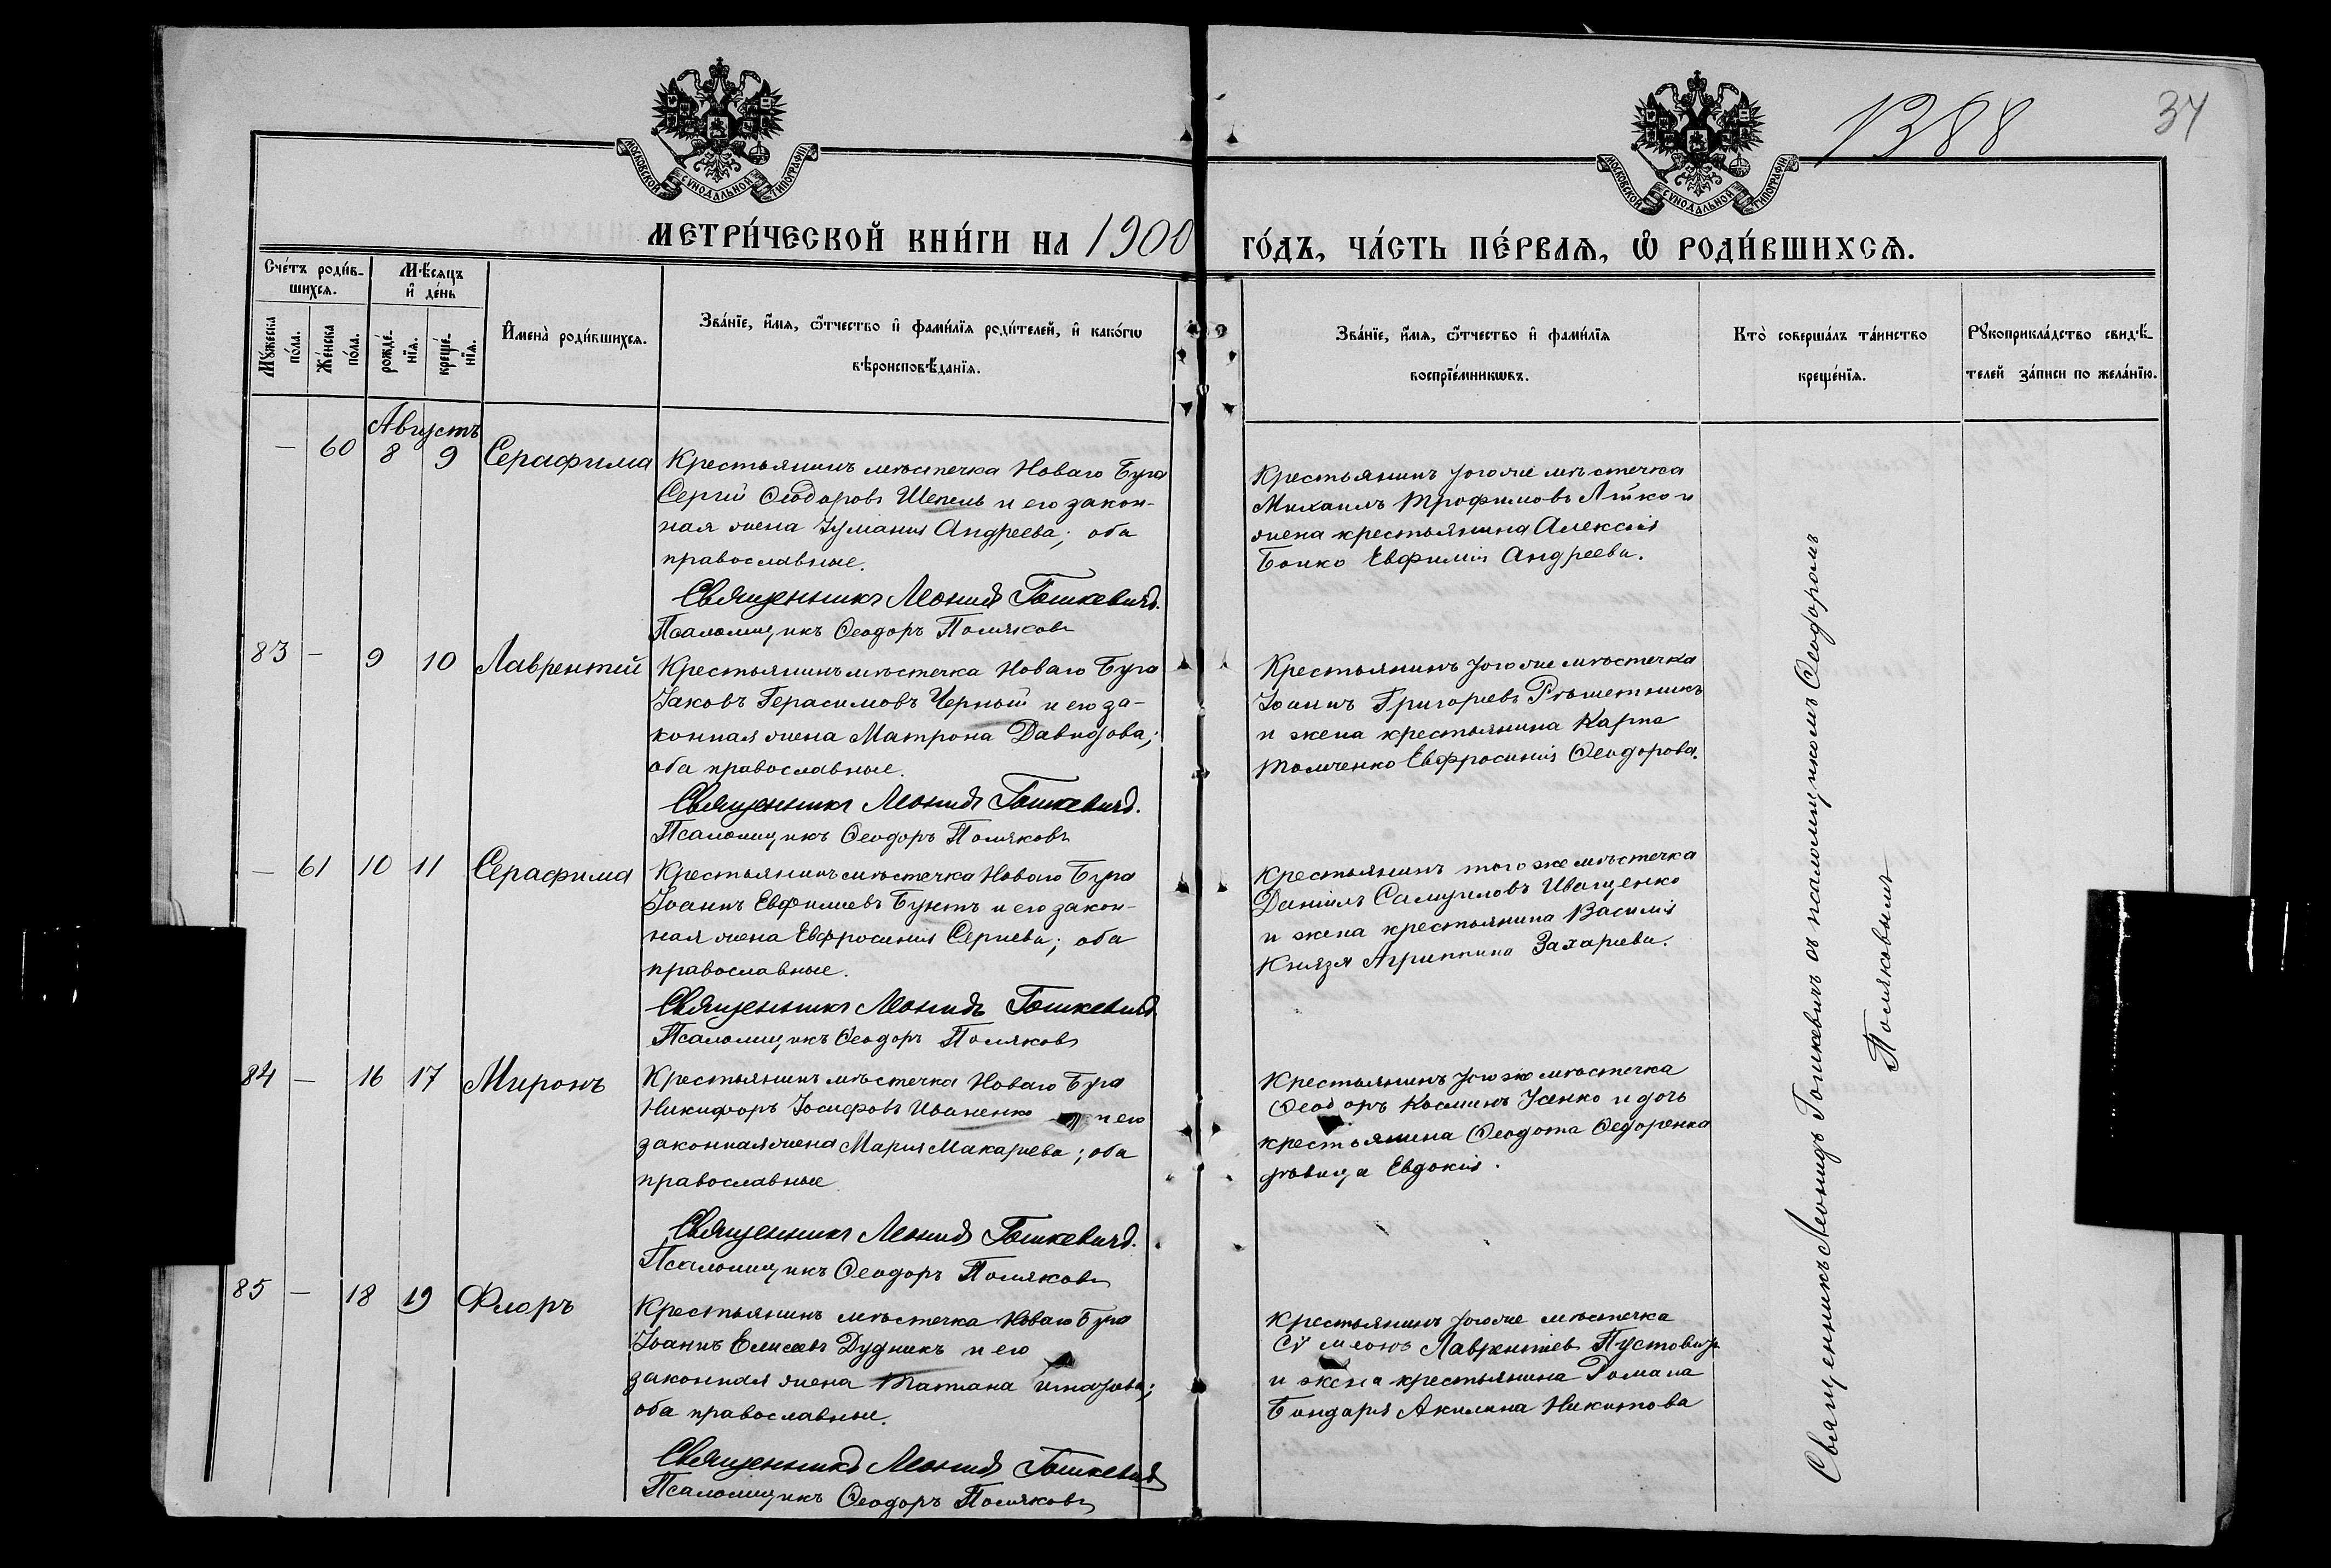 МОСКОВСКОЙ СѴНОДАЛЬНОЙ ТИПОГРАФІИ
МОСКОВСКОЙ СѴНОДАЛЬНОЙ ТИПОГРАФІИ
1388
34
МЕТРИ́ЧЕСКОЙ КНИ́ГИ НА 1900 ГО́ДЪ, ЧА́СТЬ ПЕ́РВАѦ, Ѡ҆ РОДИ́ВШИХСѦ.
Сче́тъ роди́в-
шихсѧ.
Мꙋ́жеска по́ла.
Же́нска по́ла.
Мѣ́сяцъ
и҆ де́нь
рожде́-
нїѧ.
креще́-
нїѧ.
И҆мена̀ роди́вшихсѧ.
Зва́нїе, и҆́мѧ, ѻ҆́тчество и҆ фами́лїѧ роди́телей, и҆ како́гѡ
вѣроисповѣ́данїѧ.
Зва́нїе, и҆́мѧ, ѻ҆́тчество и҆ фами́лїѧ
воспрїе́мникѡвъ.
Кто̀ соверша́лъ та́инство
креще́нїѧ.
Рꙋкоприкла́дство свидѣ́-
телей за́писи по жела́нїю.
Августъ
— 60 8 9 Серафима
Крестьянинъ мѣстечка Новаго Буга
Сергій Ѳеодоровъ Шепель и его закон-
ная жена Іуманія Андреева; оба
православные.
Священникъ Леонидъ Гошкевичъ.
Псаломщикъ Ѳеодоръ Поляковъ
Крестьянинъ того же мѣстечка
Михаилъ Трофимовъ и
жена крестьянина Алексія
Бойко Евфимія Андреева.
83 — 9 10 Лаврентій
Крестьянинъ мѣстечка Новаго Буга
Іаковъ Герасимовъ Черный и его за-
конная жена Матрона Давидова;
оба православные.
Священникъ Леонидъ Гошкевичъ.
Псаломщикъ Ѳеодоръ Поляковъ
Крестьянинъ того же мѣстечка
Іоаннъ Григорьевъ Рѣшетникъ
и жена крестьянина Карпа
Толченко Евфросинія Ѳеодорова.
— 61 10 11 Серафима
Крестьянинъ мѣстечка Новаго Буга
Іоаннъ Евфиміевъ Букетъ и его закон-
ная жена Евфросинія Сергіева; оба
православные.
Священникъ Леонидъ Гошкевичъ
Псаломщикъ Ѳеодоръ Поляковъ
Крестьянинъ того же мѣстечка
Даніилъ Самуиловъ Иващенко
и жена крестьянина Василія
Князя Агриппина Захаріева.
84 — 16 17 Миронъ
Крестьянинъ мѣстечка Новаго Буга
Никифоръ Іосифовъ Иваненко и его
законная жена Марія Макаріева; оба
православные
Священникъ Леонидъ Гошкевичъ.
Псаломщикъ Ѳеодоръ Поляковъ
Крестьянинъ того же мѣстечка
Ѳеодоръ Косминъ Усенко и дочь
крестьянина Ѳеодота Ѳедоренка
дѣвица Евдокія.
85 — 18 19 Флоръ
Крестьянинъ мѣстечка Новаго Буга
Іоаннъ Елисеевъ Дудникъ и его
законная жена Татіана Игнатова;
оба православные.
Священникъ Леонидъ Гошкевичъ
Псаломщикъ Ѳеодоръ Поляковъ
Крестьянинъ того же мѣстечка
Сѵмеонъ Лаврентіевъ Пустовитъ
и жена крестьянина Романа
Бондаря Акилина Никитова
Священникъ Леонидъ Гошкевичъ съ псаломщикомъ Ѳеодоромъ
Поляковымъ